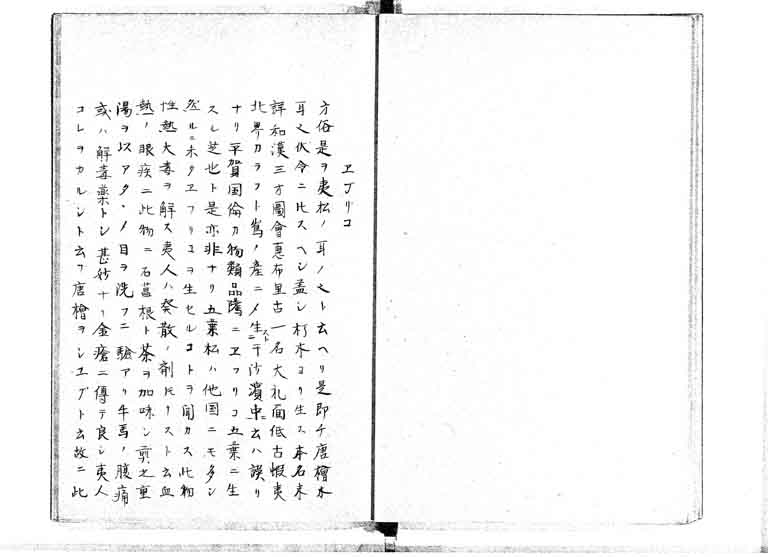 ヱブリコ
方俗是ヲ夷松ノ耳ノ云ヘリ是即チ唐檜木
耳 伏令ニ比スヘシ盖シ朽木ヨリ生ス本名未
詳和漢三才圖會惠布里古一名大礼面低古蝦夷
北界カラフト嶌ノ産ニメ生干沙濱中ニ云ハ誤リ
ナリ平賀国倫カ物類品隲ニヱフリコ五葉ニ生
スル芝也ト是亦非ナリ五葉松ハ他国ニモ多シ
然ルニ未タヱフリコヲ生セルコトヲ聞カス此物
性熱大毒ヲ解ス夷人ハ発散ノ剤ニスト云血
熱ノ眼疾ニ此物ニ石菖根ト茶ヲ加味シ煎之重
湯ヲ以アタヽメ目ヲ洗フニ驗アリ牛馬ノ腹痛
或ハ解毒藥トシ甚妙ナリ金瘡ニ傅テ良シ夷人
コレヲカルシト云フ唐檜ヲシユグト云故ニ此